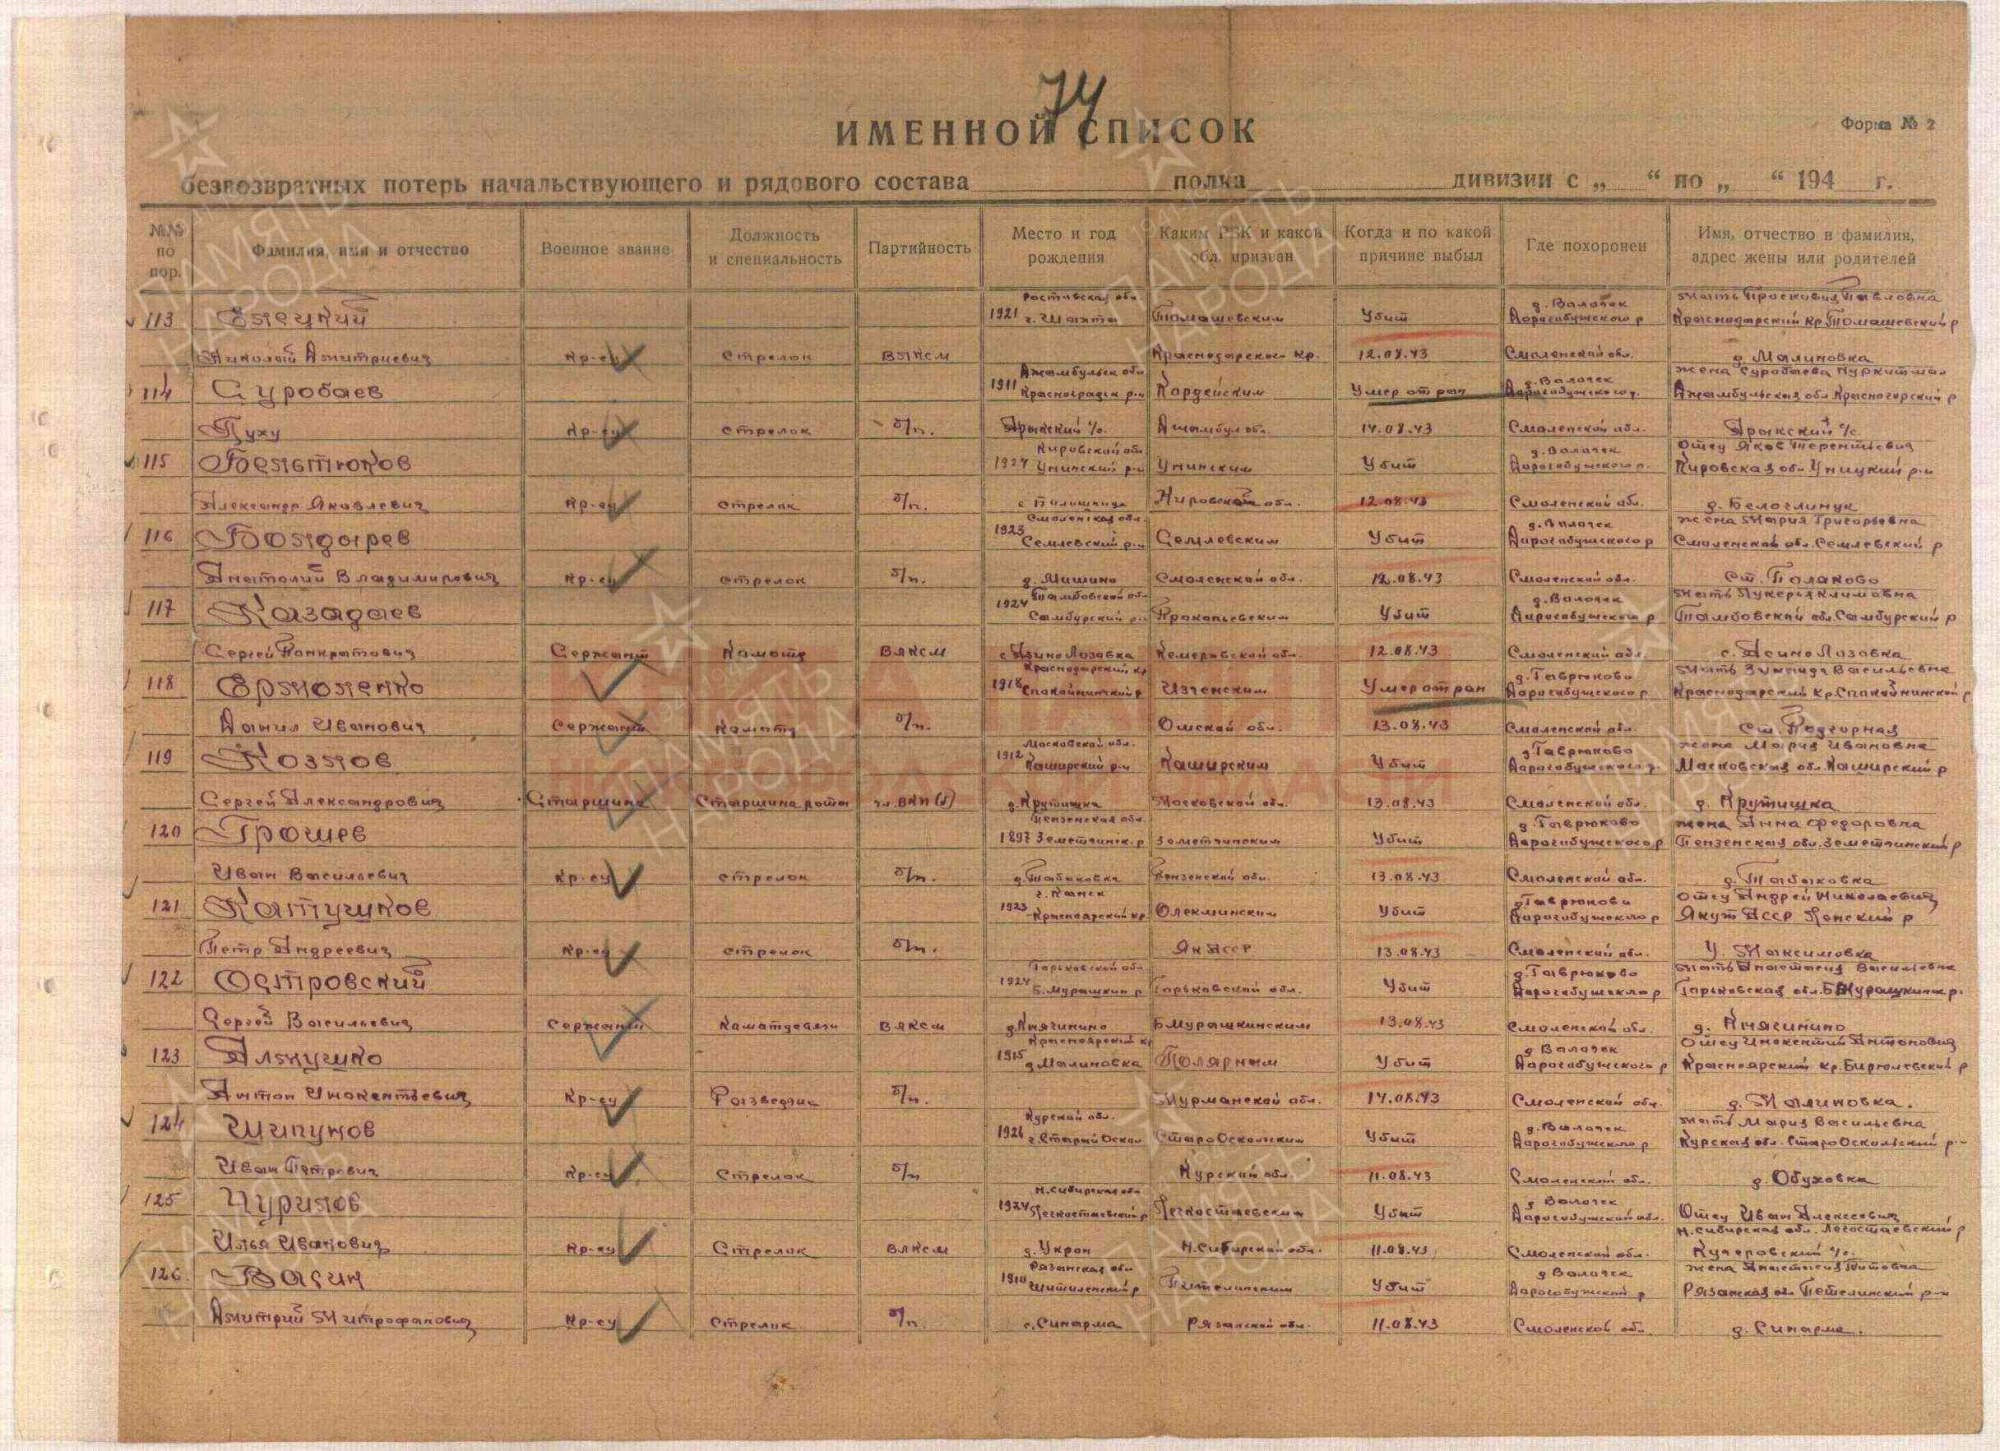 74
ИМЕННОЙ СПИСОК
Форма № 2
безвозвратных потерь начальствующего и рядового состава полка дивизии с „ “ по „ “ 194 г.
№№ по пор. Фамилия, имя и отчество Военное звание Должность и специальность Партийность Место и год рождения Каким РВК и какой обл. призван Когда и по какой причине выбыл Где похоронен Имя, отчество и фамилия, адрес жены или родителей
Ростовская обл. д. Валочек Мать Просковия Павловна
113 Елецкий 1921 г. Шахты Томашевским Убит Дорогобужского р Краснодарский кр. Томашевский р
Николай Дмитриевич Кр-ец Стрелок ВЛКСМ Краснодарского кр. 12.08.43 Смоленской обл. д. Малиновка
Джамбульск обл. д. Валочек жена Суробаева
114 Суробаев 1911 р-н Кордейским Умер от ран Джамбульская обл Красногорский р
Пуху Кр-ец стрелок б/п. Арыкский с/с. Джамбул об. 14.08.43 Смоленской обл. Арыкский с/с
Кировской обл. д. Валочек Отец Яков Терентьевич
115 1924 Унинский р-н Унинским Убит Дорогобужского р. Кировская обл Уницкий р-н
Александр Яковлевич Кр-ец стрелок б/п. Кировской обл. 12.08.43 Смоленской обл. д. Белоглинук
Смоленская обл. д. Валочек жена Мария Григорьевна
116 Болдырев 1923 Семлевский р-н Семлевским Убит Дорогобужского р Смоленской обл. Семлевский р
Анатолий Владимирович Кр-ец стрелок б/п. д. Мишино Смоленской обл. 12.08.43 Смоленской обл. ст. Полаково
Тамбовской об. д. Валочек Мать Лукерья Климовна
117 Казадаев 1924 Самбурский р-н Прокопьевским Убит Дорогобужского р Тамбовской обл. Самбурский р
Сергей Панкратович Сержант Комотд ВЛКСМ Кемеровской обл. 12.08.43 Смоленской обл.
Краснодарский кр д. Гаврюково Мать Зинаида Васильевна
118 Ермоленко 1918 Спокойнинский р Умер от ран Дорогобужского р Краснодарский кр. Спокойнинской р
Данил Иванович Сержант Комотд б/п. Омской обл. 13.08.43 Смоленской обл. ст. Подгорная
Московской обл. д. Гаврюково жена Мария Ивановна
119 Козлов 1912 Каширский р-н Каширским Убит Дорогобужского р. Московская обл. Каширский р
Сергей Александрович Старшина Старшина роты чл. ВКП(б) д. Крутишка Московской обл. 13.08.43 Смоленской обл. д. Крутишка
Пензенская обл. д. Гаврюково жена Анна Федоровна
120 Грошев 1897 Земетчинск. р Земетчинским Убит Дорогобужского р Пензенская обл. Земетчинский р
Иван Васильевич Кр-ец стрелок б/п. д. Табаковка Пензенской обл. 13.08.43 Смоленской обл. д. Табаковка
г. Канск д. Гаврюково Отец Андрей Николаевич
121 Катушков 1923 Красноярской кр. Олекминским Убит Дорогобужского р Якут АССР Ленский р
Петр Андреевич Кр-ец стрелок б/п. Як АССР 13.08.43 Смоленской обл. У. Максимовка
Горьковской обл д. Гаврюково Мать Анастасия Васильевна
122 Островский 1924 Б. Мурашкин р Горьковской обл. Убит Дорогобужского р Горьковская обл. Б Мурашкински р.
Сергей Васильевич Сержант ВЛКСМ д. Княгинино Бмурашкинским 13.08.43 Смоленской обл. д. Княгинино
Красноярский кр д Валочек Отец Инокентий Антонович
123 Алькушко 1915 д Малиновка Полярным Убит Дорогобужского р Красноярский кр. р
Антон Инокентьевич Кр-ец Разведчик б/п. Мурманской обл. 14.08.43 Смоленской обл. д. Малиновка.
Курской обл. д. Валочек Мать Мария Васильевна
124 Шипунов 1926 г. Старый Оскол СтароОскольским Убит Дорогобужского р Курская обл. СтароОскольский р-н
Иван Петрович Кр-ец Стрелок б/п Курской обл. 11.08.43 Смоленской обл. д. Обуховка
Н. Сибирская обл д Валочек
125 Чурилов 1924 Легкостаевский р Легкостаевским Убит Дорогобужской обл. Отец Иван Алексеевич
Н. Сибирская обл. Легостаевский р
Илья Иванович Кр-ец Стрелок ВЛКСМ д. Украи Н. Сибирской обл. 11.08.43 Смоленской обл. Кучеровский с/с.
Рязанская обл д Валочек жена Анастасия Титовна
126 Васин 1910 Пителинским Убит Дорогобужской р Рязанская обл Петелинский р-н
Дмитрий Митрофанович Кр-ец Стрелок б/п с. Синарма Рязанской обл. 11.08.43 Смоленской обл д. Синарма.
ПАМЯТЬ НАРОДА